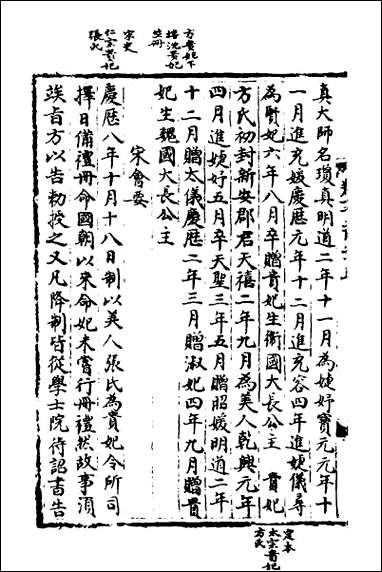 真大師名瓊真明道二年十一月為婕妤寶元元年十
一月進充媛慶歷元年十二月進充容四年進婕儀尋
為賢妃六年八月卒贈貴妃生衛國大長公主　貴妃
方氏初封新安郡君天禧二年九月為美人乾興元年
四月進婕妤五月卒天聖三年五月贈昭媛明道二年
十二月贈太儀慶歷二年三月贈淑妃四年九月贈貴
妃生魏國大長公主
宋會要
慶歷八年十月十八日制以美人張氏為貴妃令所司
擇日備禮冊命國朝以來命妃未嘗行冊禮然故事須
竢旨方以告勑授之又凡降制皆從學士院待詔書告
定本
太宗貴妃
方氏
方貴妃下
接沈貴妃
一冊
宋史
仁宗貴妃
張氏